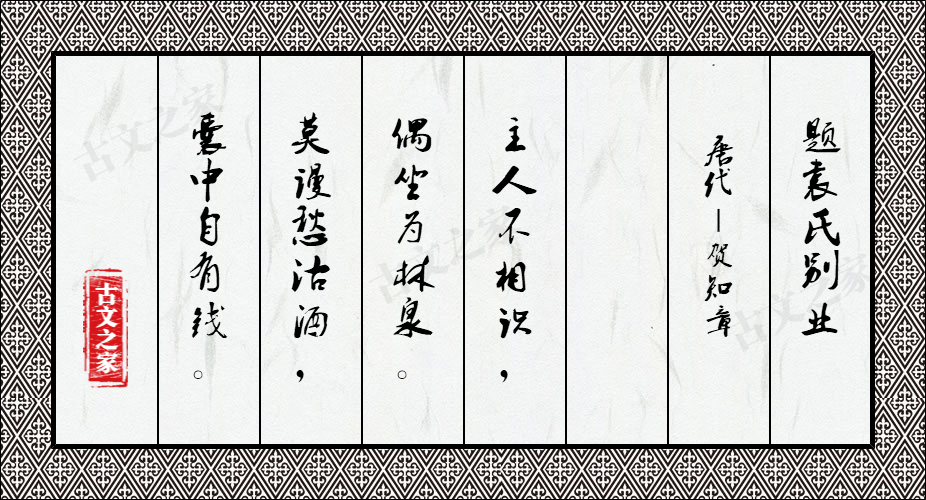 题袁氏别业
唐代—贺知章
主人不相识，
偶坐为林泉。
莫谩愁沽酒，
囊中自有钱。
古文之家